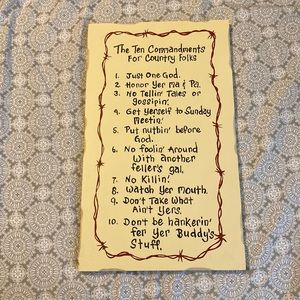 The Ten Commandments
For Country Folks
1. Just One God.
2. Honor Yer Ma & Pa.
3. No Tellin' Tales or
gossipin'.
4. Get Yerself to Sunday
Meetin'.
5. Put nuthin' before
God.
6. No foolin' Around
With another
feller's gal.
7. No Killin'.
8. Watch Yer mouth.
9. Don't Take What
Ain't Yers.
10. Don't be hankerin'
fer Yer Buddy's
Stuff.